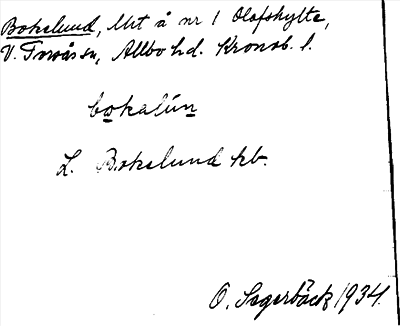 Bokslund, lht å nr 1 Olofshylte,
V. Torsås sn, Allbo hd. Kronob. l.
bokalún
L. Bokslund kb.
O. Sagerbäck 1934.